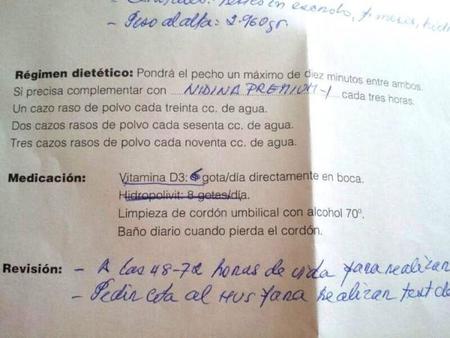 - Peso al alta: 2.960 gr.
Régimen dietético: Pondrá el pecho un máximo de diez minutos entre ambos.
Si precisa complementar con NIDINA PREMIUM-1 cada tres horas.
Un cazo raso de polvo cada treinta cc. de agua.
Dos cazos rasos de polvo cada sesenta cc. de agua.
Tres cazos rasos de polvo cada noventa cc. de agua.
Medicación: Vitamina D3: 6 gota/día directamente en boca.
Hidropolivit: 8 gotas/día.
Limpieza de cordón umbilical con alcohol 70º.
Baño diario cuando pierda el cordón.
Revisión: - A las 48-72 horas de vida para realizar
- Pedir cita al HUS para realizar test de